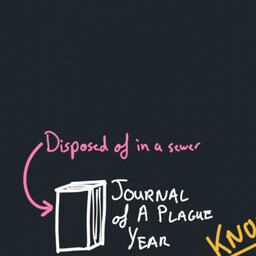 Disposed of in a sewer
JOURNAL
of A PLAGUE
YEAR
KNO